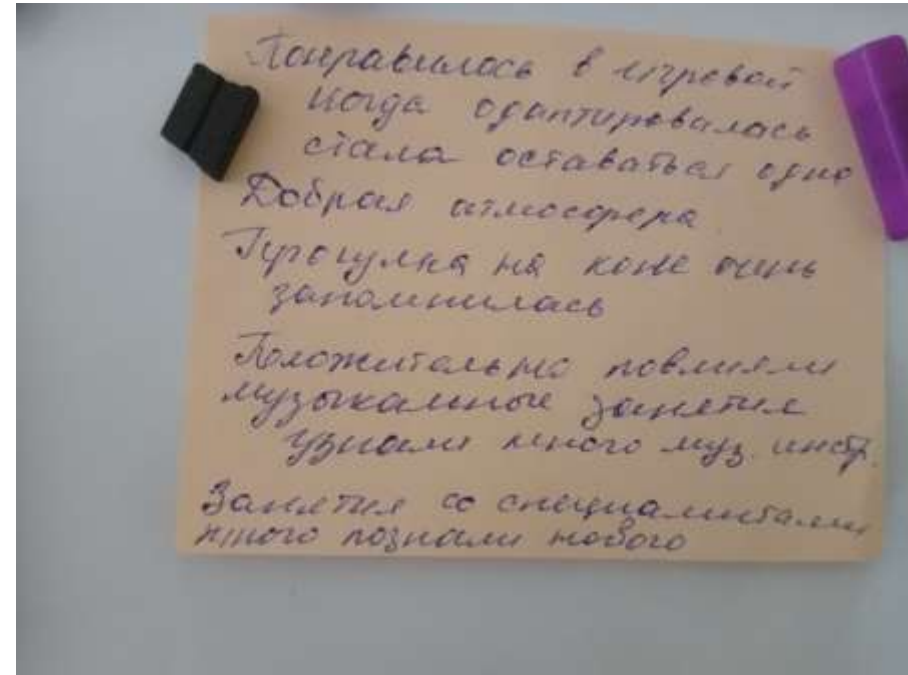 Понравилось в игровой
Когда адаптировалась
стала оставаться одна
Добрая атмосфера
Прогулка на коне очень
запомнилась
Положительно повлияли
музыкальные занятия
узнали много муз. инстр.
Занятия со специалистами
много познали нового